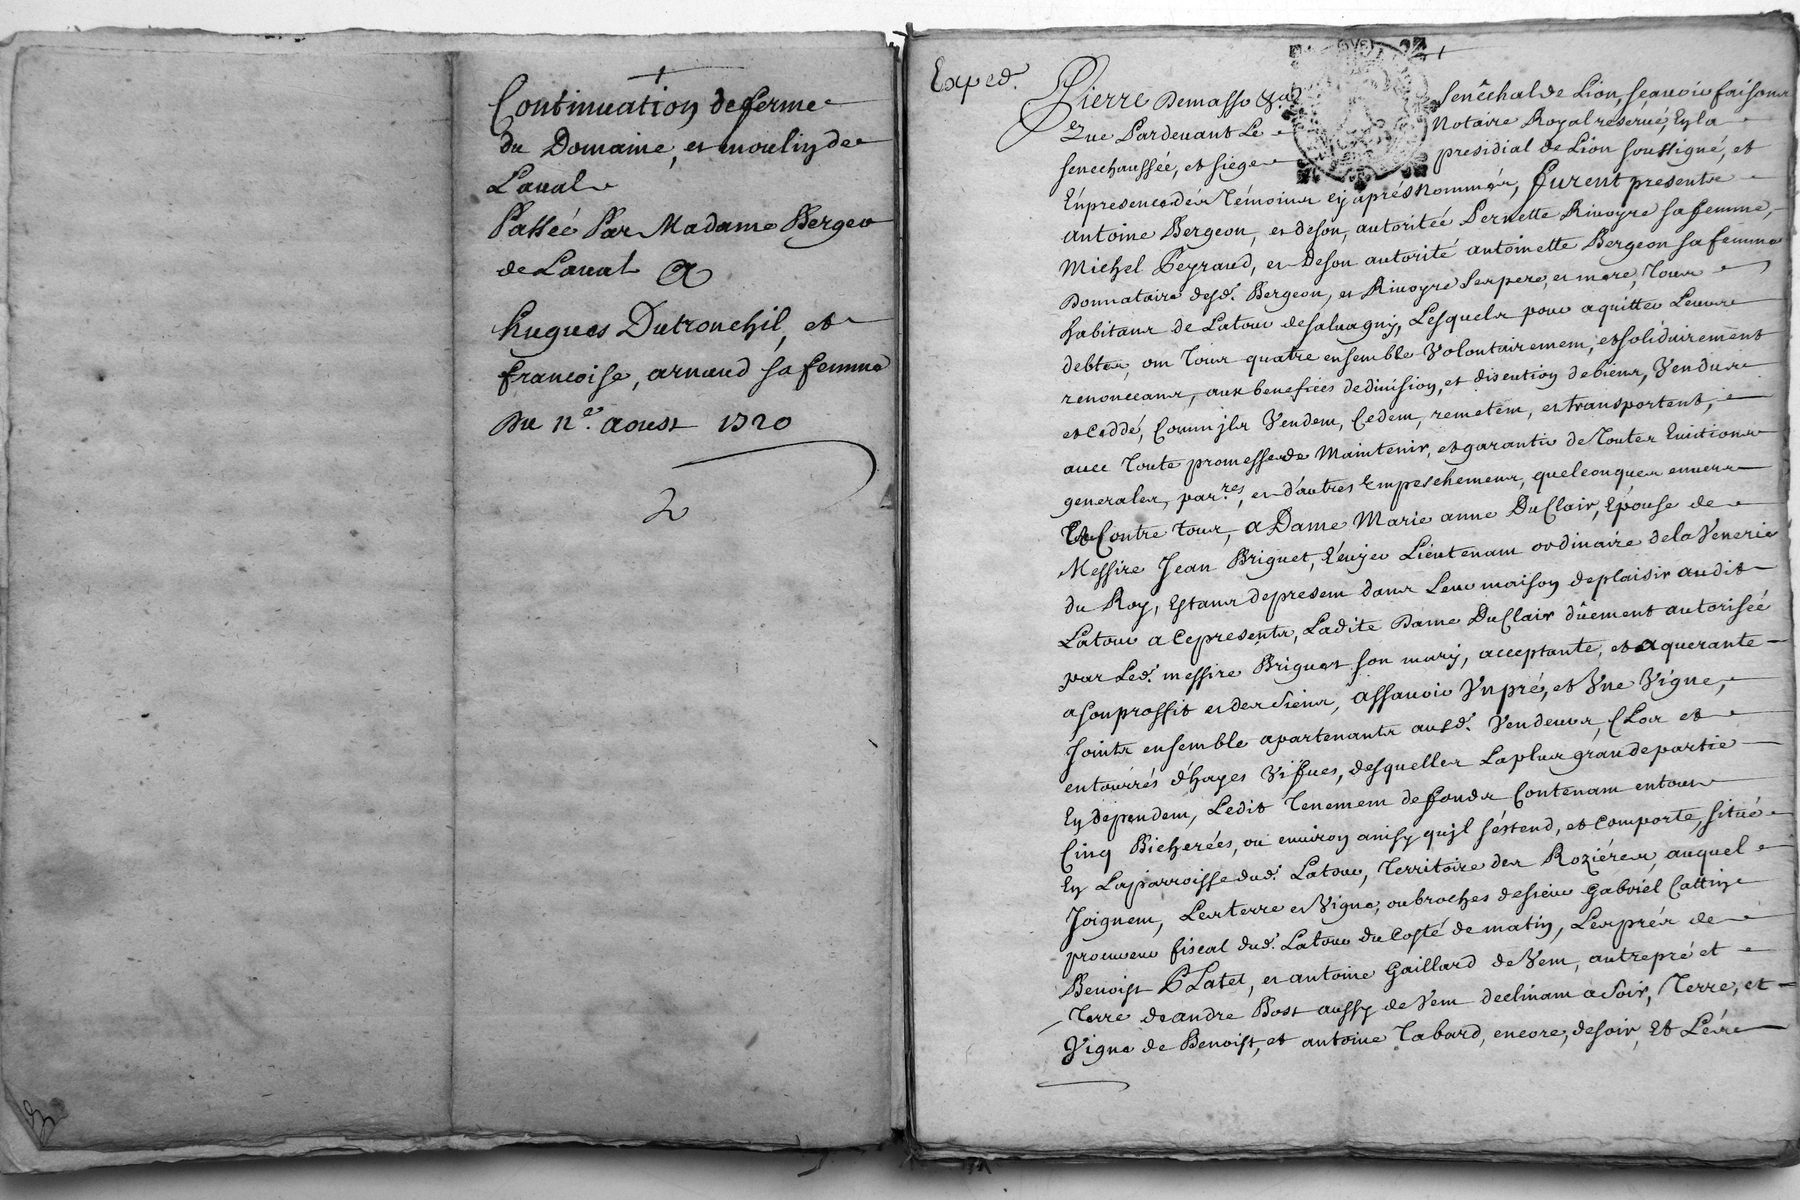 Continuation de ferme
du Domaine, et moulin de
Laual
Passée Par Madame Bergeo
de Laual A
hugues Dutronchil, et
francoise, arnaud sa femme
Du 12.e aoust 1720
Exped.
Pierre Demasso Senêchal de Lion, scauoir faisons
Que Pardeuant Le Notaire Royal reserué, En la
senechaussée, et siege presidial de Lion soussigné, et
En presence des Témoins cy aprés Nommés, furent presents
antoine Bergeon, et de son autoritée Pernette Riuoyre sa femme,
Michel Peyraud, et de son autorité antoinette Bergeon sa femme
Donnataire desd. Bergeon, et Riuoyre ses pere, et mere, Tous
habitans de Latour de saluagny, Lesquels pour aquitter Leurs
debtes, ont Tous quatre ensemble Volontairement, et solidairement
renonceans, aux benefices de diuision, et discution de biens, Vendus
et Ceddé, Comm' jls Vendent, Cedent, remetent, et transportent,
auec Toute promesse de Maintenir, et garantir de Toutes Euictions
generales, par.res, et d'autres Empeschemens, quelconques enuers
Et Contre tous, a Dame Marie anne DuClair, Epouse de
Messire Jean Briguet, Ecuyer Lieutenant ordinaire de la Venerie
du Roy, Estans de present dans Leur maison de plaisir audit
Latour a Ce presents, Ladite Dame DuClair dûement autorisée
par Led. messire Briguet son mary, acceptante, et aquerante
a son proffit et des siens, assauoir Vn pré, et Vne Vigne,
Joints ensemble apartenants ausd. Vendeurs, Clos et
entourrés d'hayes Vifues, desquelles La plus grande partie
En dependent, Ledit Tenement de fonds Contenant entour
Cinq Bicherées, ou enuiron ainsy qu'jl s'éstend, et Comporte, situé
En La parroisse dud. Latour, Territoire des Roziéres, auquel
Joignent, Les terre et Vigne, ou broches de sieur Gabriel Cattin
procureur fiscal dud. Latour du Costé de matin, Les prés de
Benoist Platet, et antoine Gaillard de Vent, autre pré et
Terre de andre Bost aussy de Vent declinant a Soir, Terre, et
Vigne de Benoist, et antoine Tabard, encore, de soir, Et Les